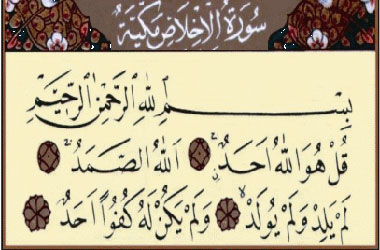 سُورَةُ الْإِخْلَاصِ مَكِّيَّةٌ
بِسْمِ اللّٰهِ الرَّحْمٰنِ الرَّحِيْمِ
قُلْ هُوَ اللّٰهُ اَحَدٌ ۚ اَللّٰهُ الصَّمَدُ ۚ
لَمْ يَلِدْ وَلَمْ يُولَدْ ۙ وَلَمْ يَكُنْ لَهُ كُفُوًا اَحَدٌ